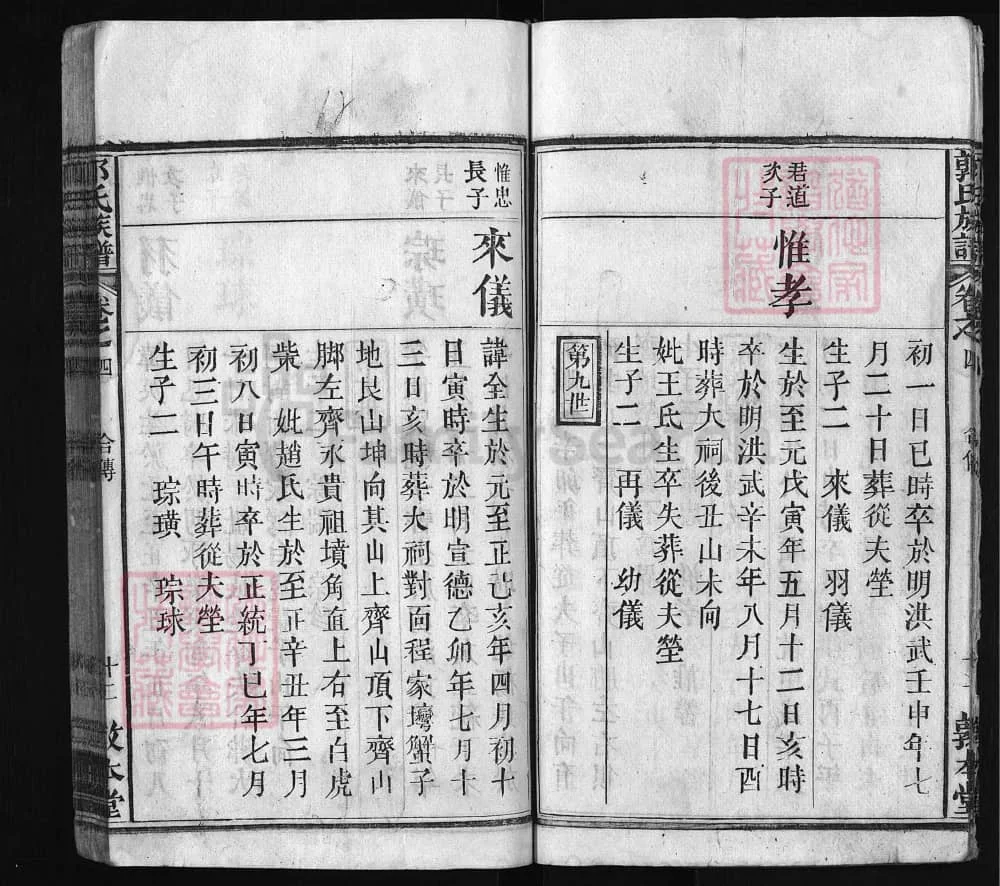 初一日巳時卒於明洪武壬申年七
月二十日葬從夫塋
生子二 來儀 羽儀
君道
次子
惟孝
生於至元戊寅年五月十二日亥時
卒於明洪武辛未年八月十七日酉
時葬大祠後丑山未向
妣王氏生卒失葬從夫塋
生子二 再儀 幼儀
第九世
惟忠
長子
來儀
諱全生於元至正己亥年四月初十
日寅時卒於明宣德乙卯年七月十
三日亥時葬大祠對面程家塆蟹子
地艮山坤向其山上齊山頂下齊山
脚左齊永貴祖墳角直上右至白虎
柴 妣趙氏生於至正辛丑年三月
初八日寅時卒於正統丁巳年七月
初三日午時葬從夫塋
生子二 琮璜 琮球
郭氏族譜 卷之四 合傳 十二 敦本堂